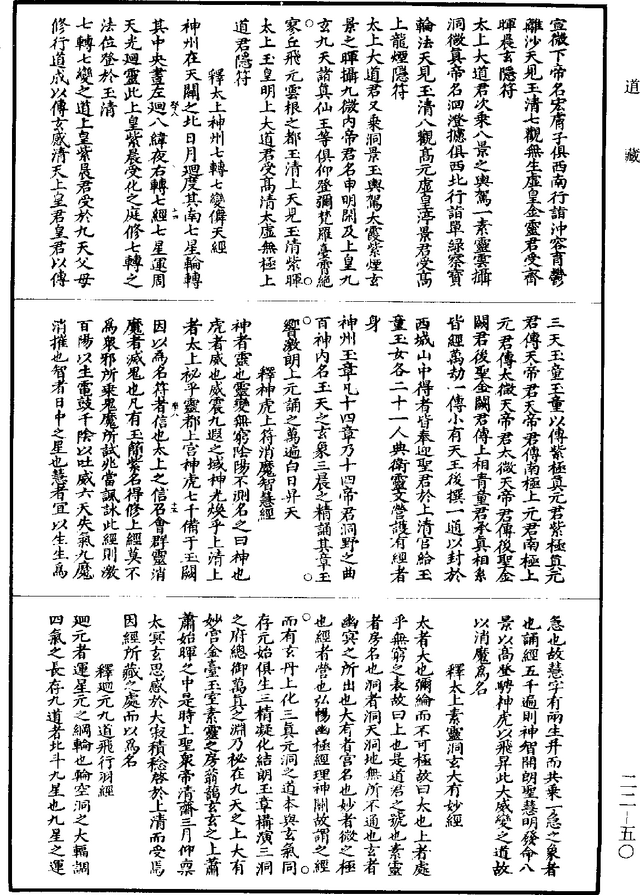 道藏
宣微下帝名宏膺子俱西南行詣沖容育鬱
離沙天見玉清七觀無生虛皇金靈君受齊
暉晨玄隱符
太上大道君次乘八景之輿駕一素靈雲攝
洞微真帝名洄澄攄俱西北行詣單綠察寶
輪法天見玉清八觀高元虛皇淳景君受高
上龍煙隱符
太上大道君又乘洞景玉輿駕太霞紫煙玄
景之暉攝九微內帝君名申明闓及上皇九
玄九天諸真仙王等俱仰登彌梵羅臺霄絕
寥丘飛元雲根之都玉清上天見玉清紫暉
太上玉皇明上大道君受高清太虛無極上
道君隱符
釋太上神州七轉七變儛天經
神州在天關之北日月迴度其南七星輪轉
其中央晝左迴八緯夜右轉七經七星運周
天光迴靈此上皇紫晨受化之庭修七轉之
法位登於玉清
七轉七變之道上皇紫晨君受於九天父母
修行道成以傳玄感清天上皇君皇君以傳
三天玉童玉童以傳紫極真元君紫極真元
君傳天帝君天帝君傳南極上元君南極上
元君傳太微天帝君太微天帝君傳後聖金
闕君後聖金闕君傳上相青童君承真相系
皆經萬劫一傳小有天王後撰一通以封於
西城山中得者皆奉迎聖君於上清宮給玉
童玉女各二十一人典衛靈文營護有經者
身
神州玉章凡十四章乃十四帝君洞野之曲
百神內名玉天之玄象三晨之精誦其章玉
響激朗上元誦之萬遍白日昇天
釋神虎上符消魔智慧經
神者靈也靈變無窮陰陽不測名之曰神也
虎者威也威震九遐之域神光煥乎上清上
者太上祕乎靈都上宮神虎七千備于玉闕
因以為名符者信也太上之信召會群靈消
魔者滅鬼也凡有玉簡紫名得修上經莫不
為眾邪所乘鬼魔所試兆當諷詠此經則激
百陽以生電鼓千陰以吐威六天失氣九魔
消摧也智者日中之星也慧者宜以生生為
急也故慧字有兩生并而共乘一急之象者
也誦經五千遍則神智開朗聖慧明發命八
景以高登騁神虎以飛昇此大威變之道故
以消魔為名
釋太上素靈洞玄大有妙經
太者大也彌綸而不可極故曰太也上者處
乎無窮之表故曰上也是道君之號也素靈
者房名也洞者洞天洞地無所不通也玄者
幽冥之所出也大有者宮名也妙者微之極
也經者營也弘暢幽極經理神關故謂之經
而有玄丹上化三真元洞之道本與玄氣同
存元始俱生三精凝化結朗玉章構演三洞
之府總御萬真之淵乃秘在九天之上大有
妙宮金臺玉室素靈之房蓊藹玄玄之上蕭
蕭始暉之中是時上聖眾帝清齋三月仰稟
太冥玄思感於大寂積稔啓於上清而受焉
因經所藏之處而以為名
釋迴元九道飛行羽經
迴元者運星元之綱輪也輪空洞之大輻調
四氣之長存九道者北斗九星也九星之運
二二—五〇